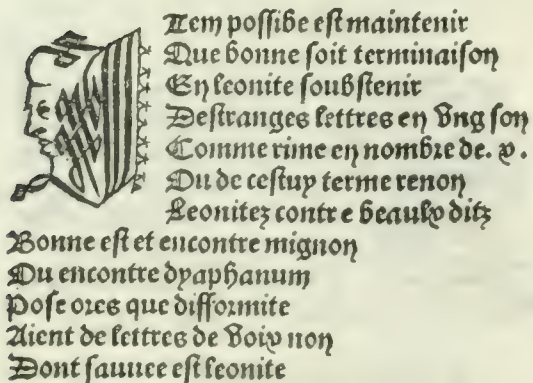 ITem possibe est maintenir
Que bonne soit terminaison
En leonite soubstenir
Destranges lettres en vng son
Comme rime en nombre de. x.
Ou de cestuy terme renon
Leonitez contre beaulx ditz
Bonne est et encontre mignon
Ou encontre dyaphanum
Pose ores que difformite
Aient de lettres de voix non
Dont saunce est leonite